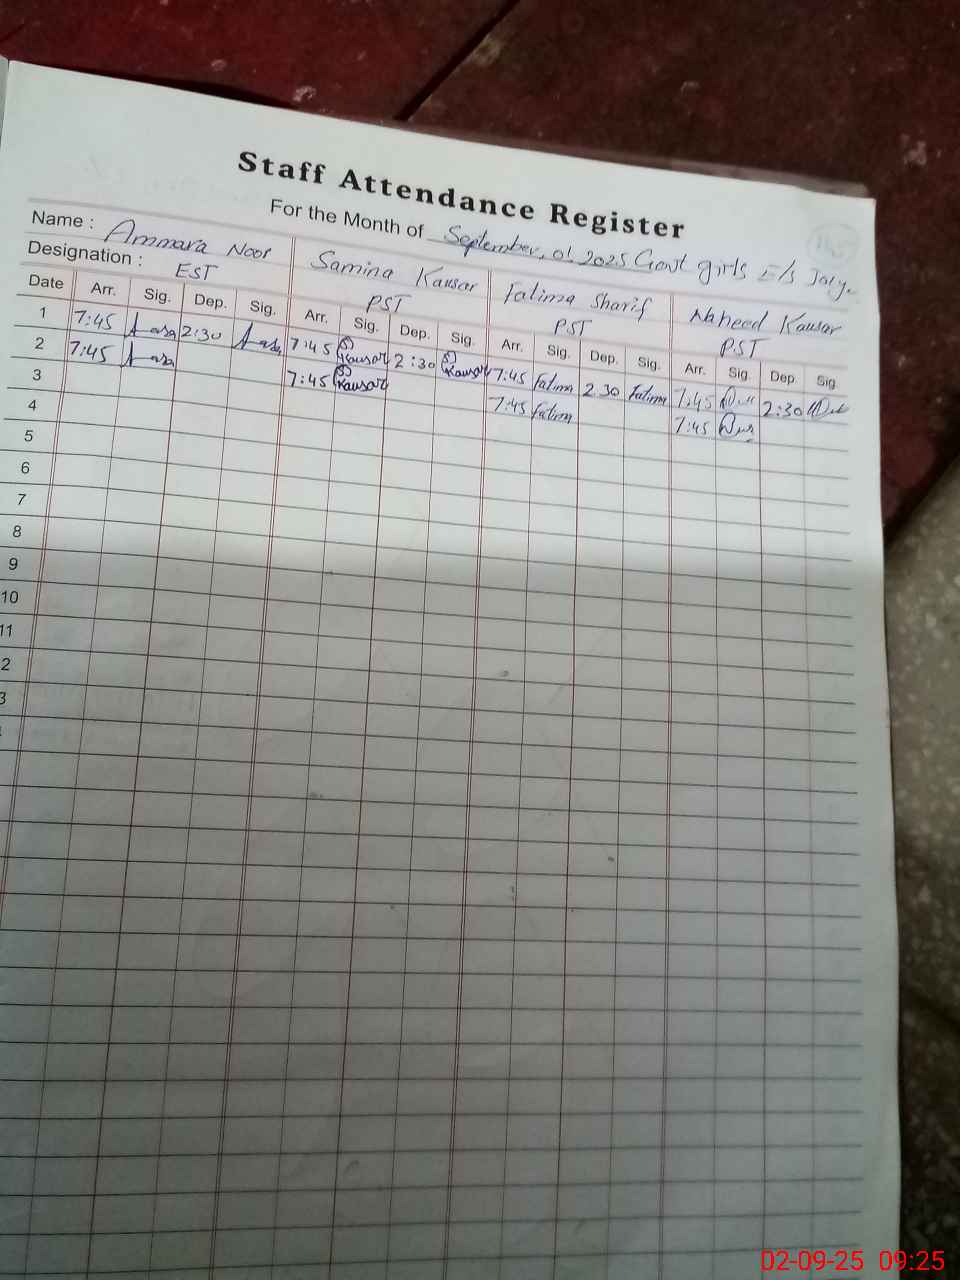 Staff Attendance Register
For the Month of September, 01, 2025 Govt girls E/S Jory.
Name : Ammara Noor Samina Kausar Fatima Sharif Naheed Kausar
Designation : EST PST PST PST
Date Arr. Sig. Dep. Sig. Arr. Sig. Dep. Sig. Arr. Sig. Dep. Sig. Arr. Sig. Dep. Sig
1 7:45 2:30 7:45 Kausar 2:30 Kausar 7:45 Fatima 2:30 Fatima 7:45 2:30
2 7:45 7:45 Kausar 7:45 Fatima 7:45
3
4
5
6
7
8
9
10
11
2
3
02-09-25 09:25